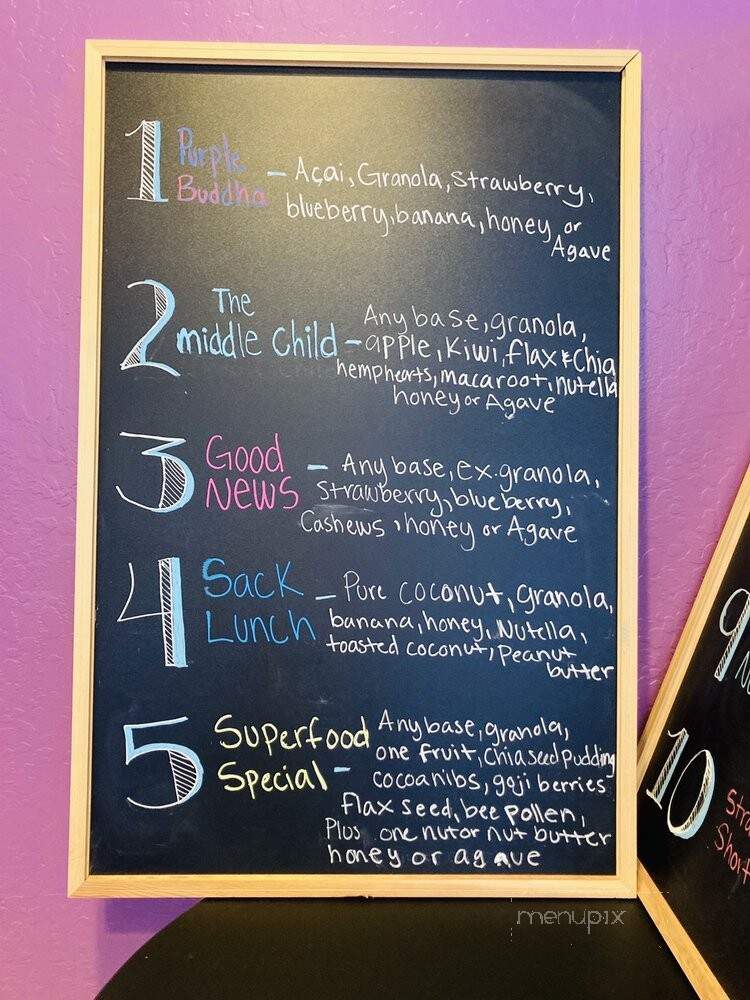 1 Purple Buddha - Açai, Granola, Strawberry,
blueberry, banana, honey or
Agave
2 The middle Child - Any base, granola,
apple, Kiwi, flax & Chia
hemphearts, macaroot, nutella
honey or Agave
3 Good News - Any base, ex. granola,
Strawberry, blueberry,
Cashews, honey or Agave
4 Sack Lunch - Pure coconut, granola,
banana, honey, Nutella,
toasted coconut, Peanut
butter
5 Superfood Special - Any base, granola,
one fruit, Chia seed pudding
cocoanibs, goji berries
flax seed, bee pollen,
Plus one nut or nut butter
honey or agave
9
10
menupix